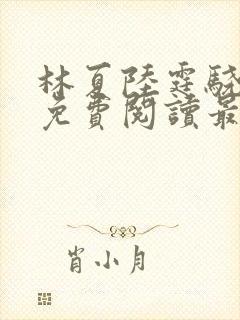 林夏陸霆驍
免費閱讀最
肖小月